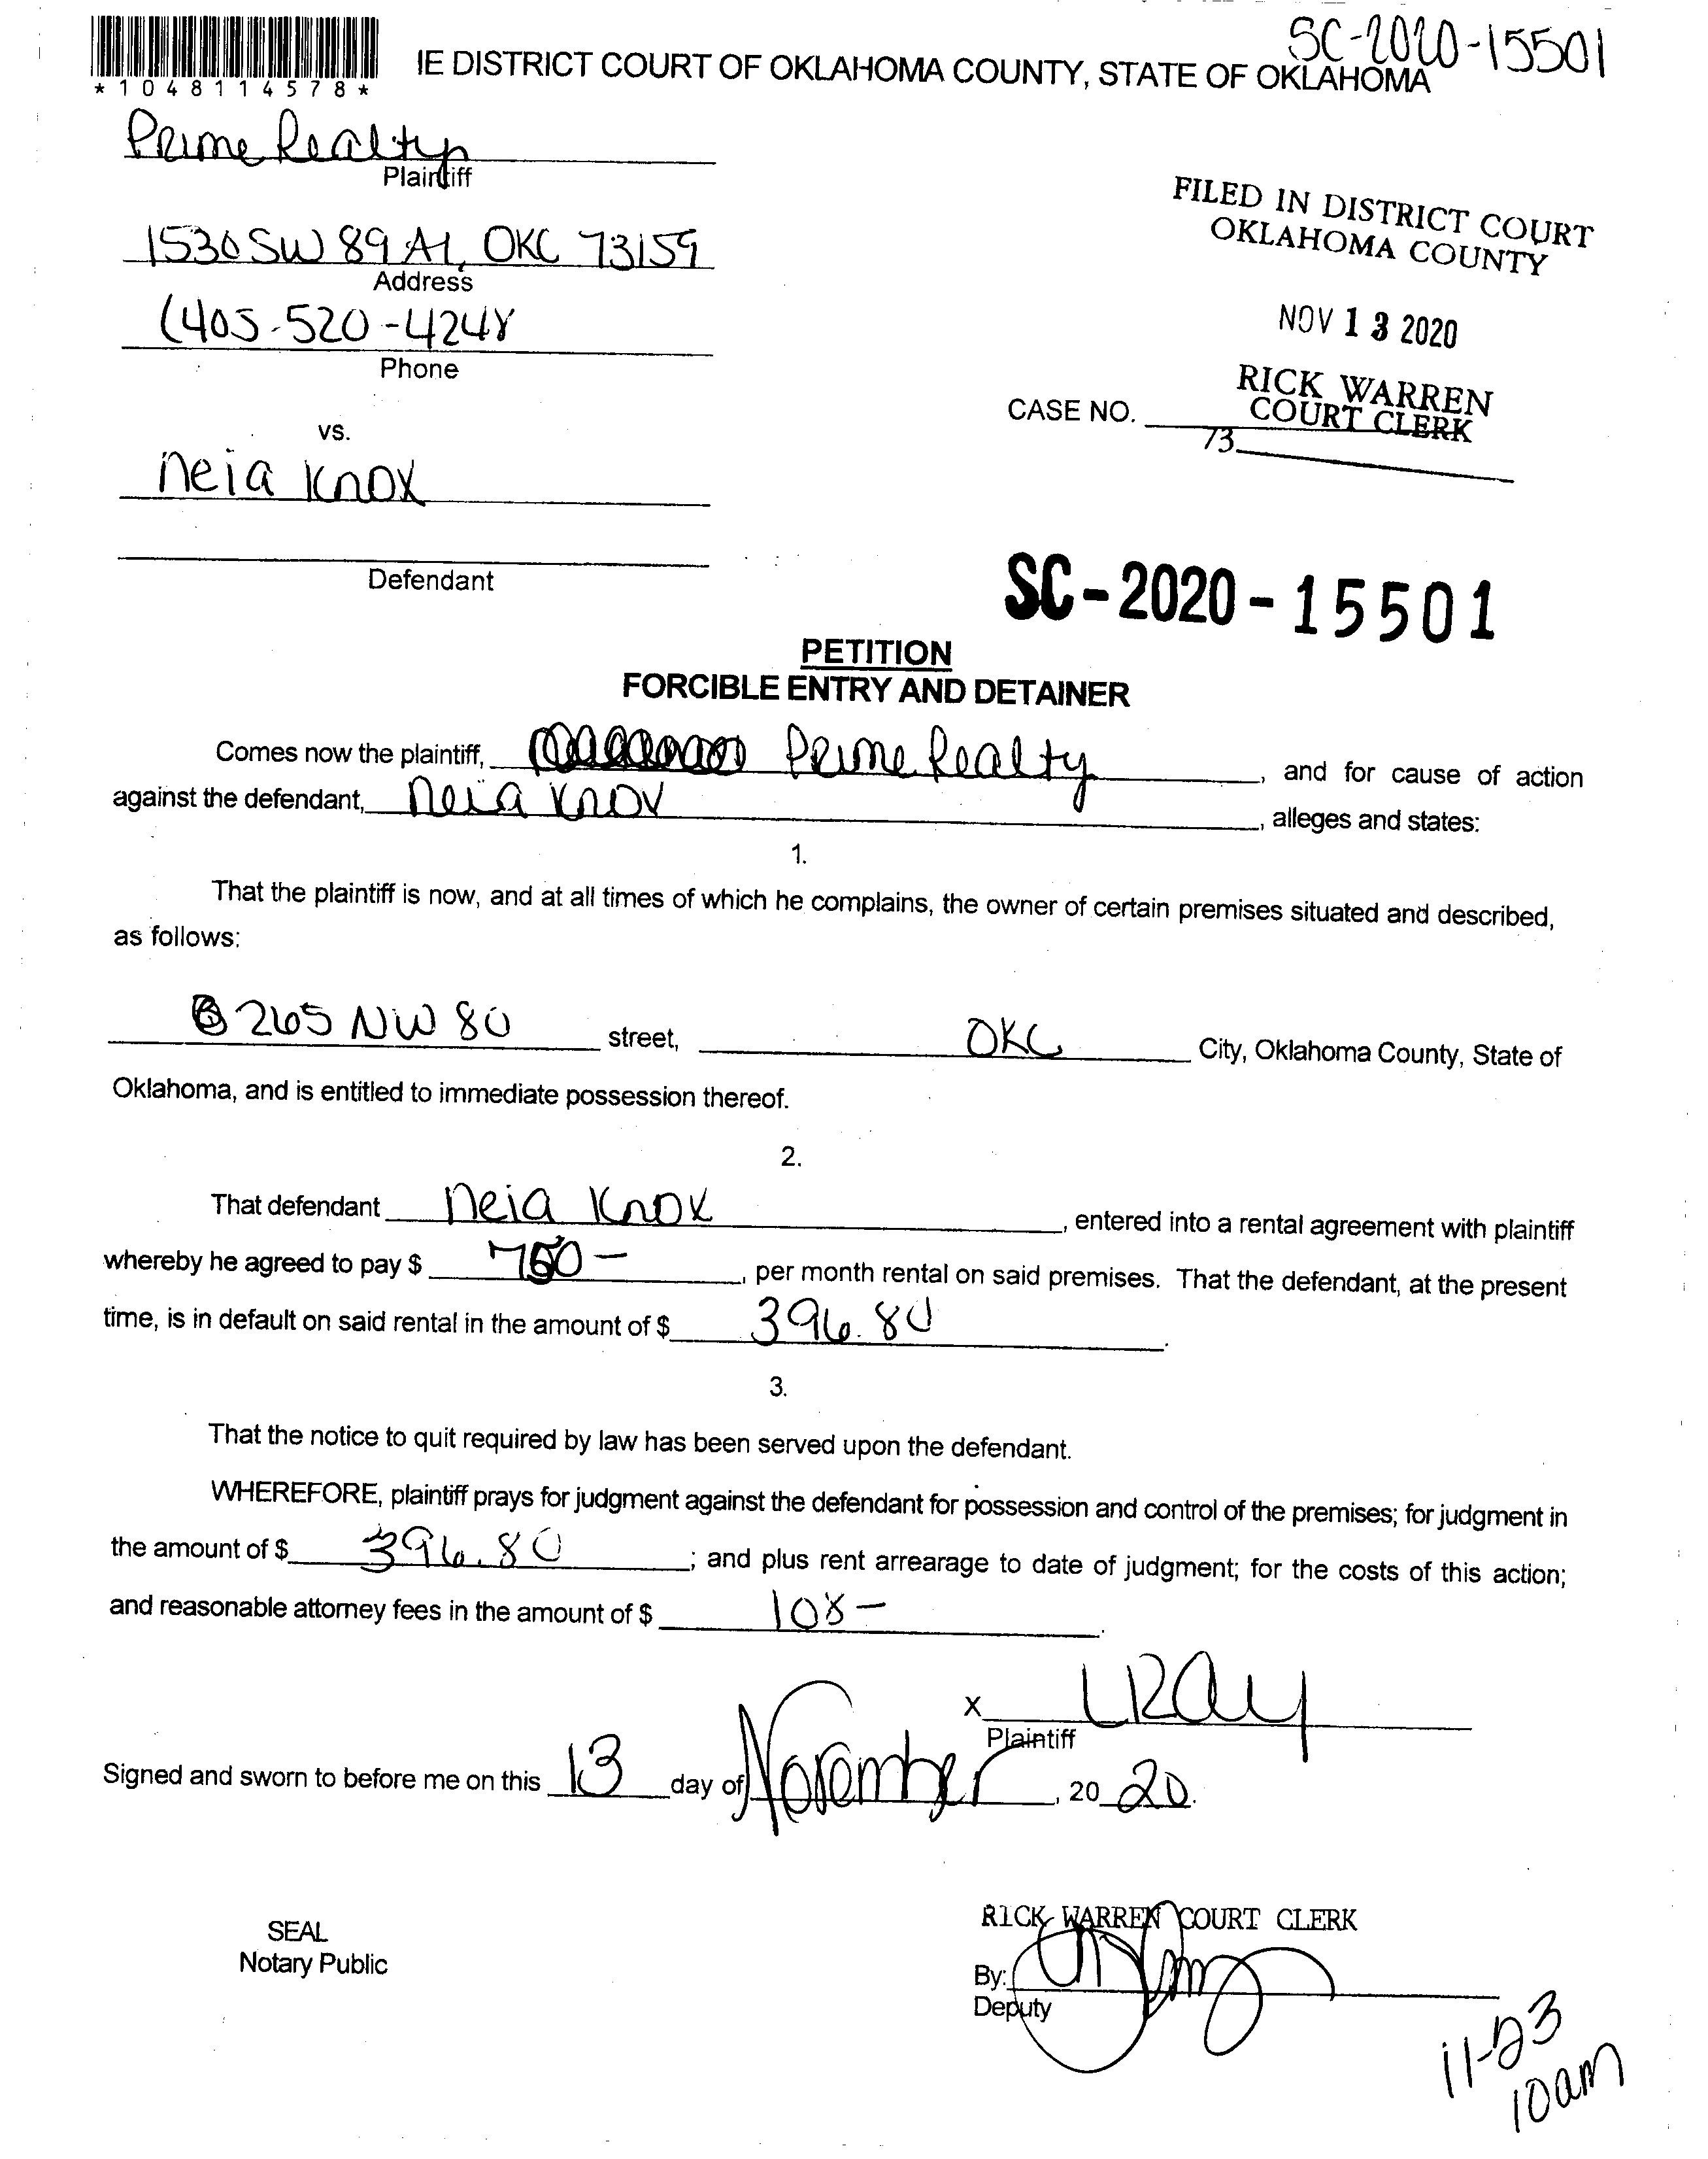 SC-2020-15501
IE DISTRICT COURT OF OKLAHOMA COUNTY, STATE OF OKLAHOMA
*1048114578*
Prime Realty
Plaintiff
1530 SW 89 A1, OKC 73159
Address
(405-520-4248
Phone
FILED IN DISTRICT COURT
OKLAHOMA COUNTY
NOV 13 2020
RICK WARREN
COURT CLERK
CASE NO.
73
vs.
Neia Knox
Defendant
SC-2020-15501
PETITION
FORCIBLE ENTRY AND DETAINER
Comes now the plaintiff, Prime Realty, and for cause of action
against the defendant, Neia Knox, alleges and states:
1.
That the plaintiff is now, and at all times of which he complains, the owner of certain premises situated and described,
as follows:
265 NW 80 street, OKC City, Oklahoma County, State of
Oklahoma, and is entitled to immediate possession thereof.
2.
That defendant Neia Knox, entered into a rental agreement with plaintiff
whereby he agreed to pay $ 750-, per month rental on said premises. That the defendant, at the present
time, is in default on said rental in the amount of $ 396.80.
3.
That the notice to quit required by law has been served upon the defendant.
WHEREFORE, plaintiff prays for judgment against the defendant for possession and control of the premises; for judgment in
the amount of $ 396.80; and plus rent arrearage to date of judgment; for the costs of this action;
and reasonable attorney fees in the amount of $ 108-.
X LRay
Plaintiff
Signed and sworn to before me on this 13 day of November, 2020.
SEAL
Notary Public
RICK WARREN COURT CLERK
By:
Deputy
11-23
10am